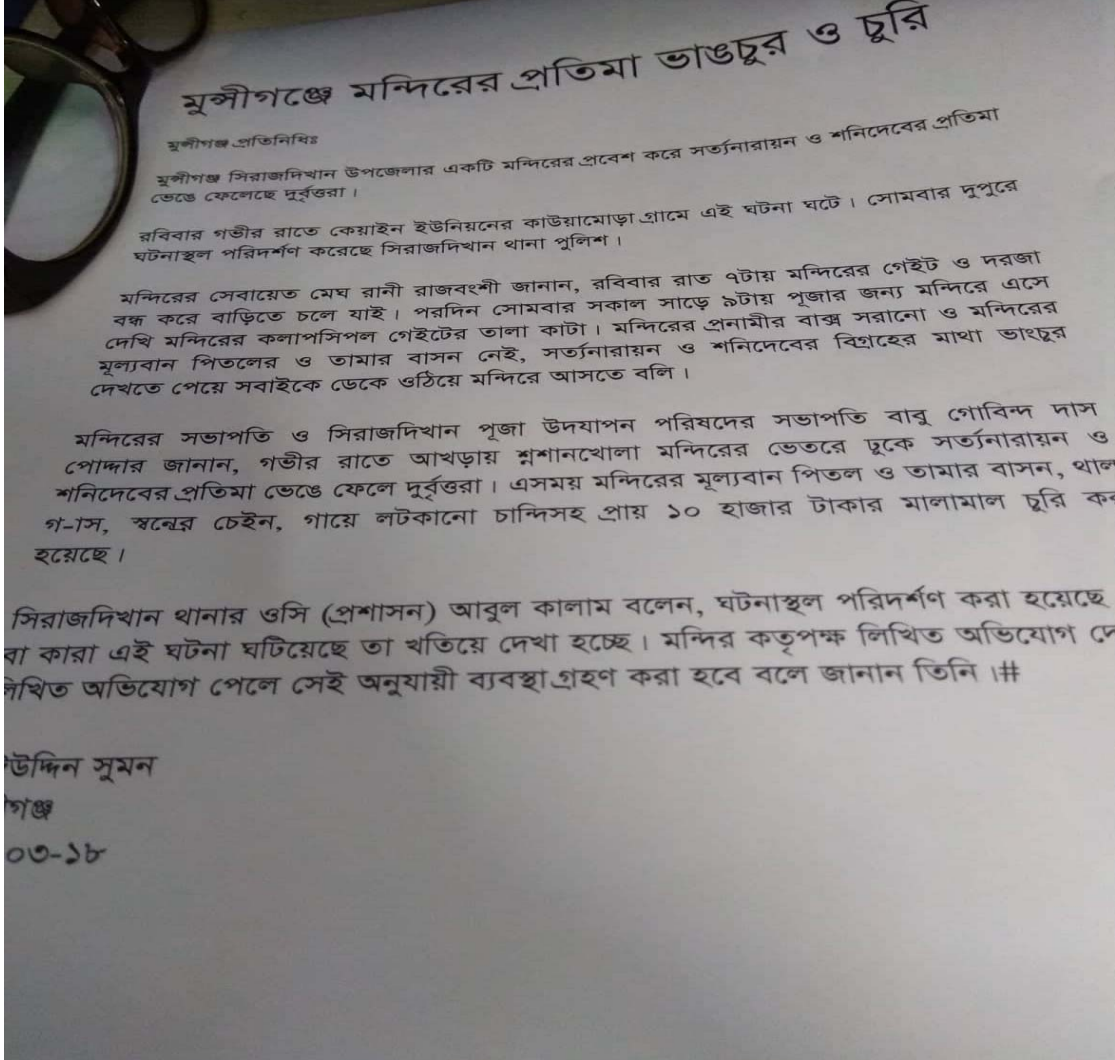 মুন্সীগঞ্জে মন্দিরের প্রতিমা ভাঙচুর ও চুরি
মুন্সীগঞ্জ প্রতিনিধিঃ
মুন্সীগঞ্জ সিরাজদিখান উপজেলার একটি মন্দিরের প্রবেশ করে সর্ত্যনারায়ন ও শনিদেবের প্রতিমা
ভেঙে ফেলেছে দুর্বৃত্তরা।
রবিবার গভীর রাতে কেয়াইন ইউনিয়নের কাউয়ামোড়া গ্রামে এই ঘটনা ঘটে। সোমবার দুপুরে
ঘটনাস্থল পরিদর্শণ করেরছে সিরাজদিখান থানা পুলিশ।
মন্দিরের সেবায়েত মেঘ রানী রাজবংশী জানান, রবিবার রাত ৭টায় মন্দিরের গেইট ও দরজা
বন্ধ করে বাড়িতে চলে যাই। পরদিন সোমবার সকাল সাড়ে ৯টায় পূজার জন্য মন্দিরে এসে
দেখি মন্দিরের কলাপসিপল গেইটের তালা কাটা। মন্দিরের প্রনামীর বাক্স সরানো ও মন্দিরের
মূল্যবান পিতলের ও তামার বাসন নেই, সর্ত্যনারায়ন ও শনিদেবের বিগ্রহের মাথা ভাংচুর
দেখতে পেয়ে সবাইকে ডেকে ওঠিয়ে মন্দিরে আসতে বলি।
মন্দিরের সভাপতি ও সিরাজদিখান পূজা উদযাপন পরিষদের সভাপতি বাবু গোবিন্দ দাস
পোদ্দার জানান, গভীর রাতে আখড়ায় শ্মশানখোলা মন্দিরের ভেতরে ঢুকে সর্ত্যনারায়ন ও
শনিদেবের প্রতিমা ভেঙে ফেলে দুর্বৃত্তরা। এসময় মন্দিরের মূল্যবান পিতল ও তামার বাসন,
গ-াস, স্বন্বের চেইন, গায়ে লটকানো চান্দিসহ প্রায় ১০ হাজার টাকার মালামাল চুরি
হয়েছে।
সিরাজদিখান থানার ওসি (প্রশাসন) আবুল কালাম বলেন, ঘটনাস্থল পরিদর্শণ করা হয়েছে
বা কারা এই ঘটনা ঘটিয়েছে তা খতিয়ে দেখা হচ্ছে। মন্দির কতৃপক্ষ লিখিত অভিযোগ
অভিযোগ পেলে সেই অনুযায়ী ব্যবস্থা গ্রহণ করা হবে বলে জানান তিনি।#
উদ্দিন সুমন
গঞ্জ
০৩-১৮